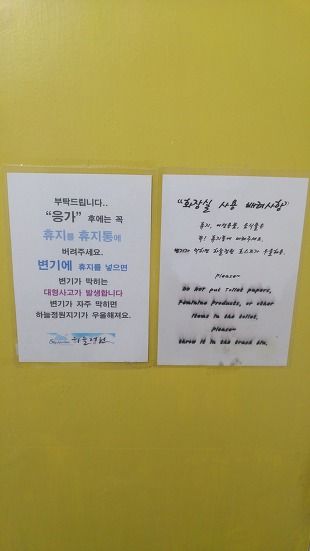 부탁드립니다..
"응가" 후에는 꼭
휴지를 휴지통에
버려주세요.
변기에 휴지를 넣으면
변기가 막히는
대형사고가 발생합니다
변기가 자주 막히면
하늘정원지기가 우울해져요.
하늘정원
"화장실 사용 배려사항"
휴지, 여성용품, 음식물은
꼭! 휴지통에 버려주세요.
변기가 막히면 하늘정원 호스트가 우울해요.
please~
Do not put toilet papers,
feminine products, or other
items in the toilet.
please~
throw it in the trash bin.